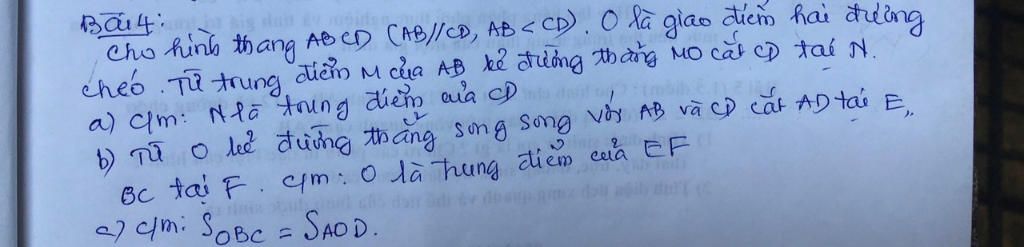 Bài 4:
Cho hình thang ABCD (AB//CD, AB < CD). O là giao điểm hai đường
chéo. Từ trung điểm M của AB kẻ đường thẳng MO cắt CD tại N.
a) C/m: N là trung điểm của CD
b) Từ O kẻ đường thẳng song song với AB và CD cắt AD tại E,
BC tại F. C/m: O là trung điểm của EF
c) C/m: S_OBC = S_AOD.